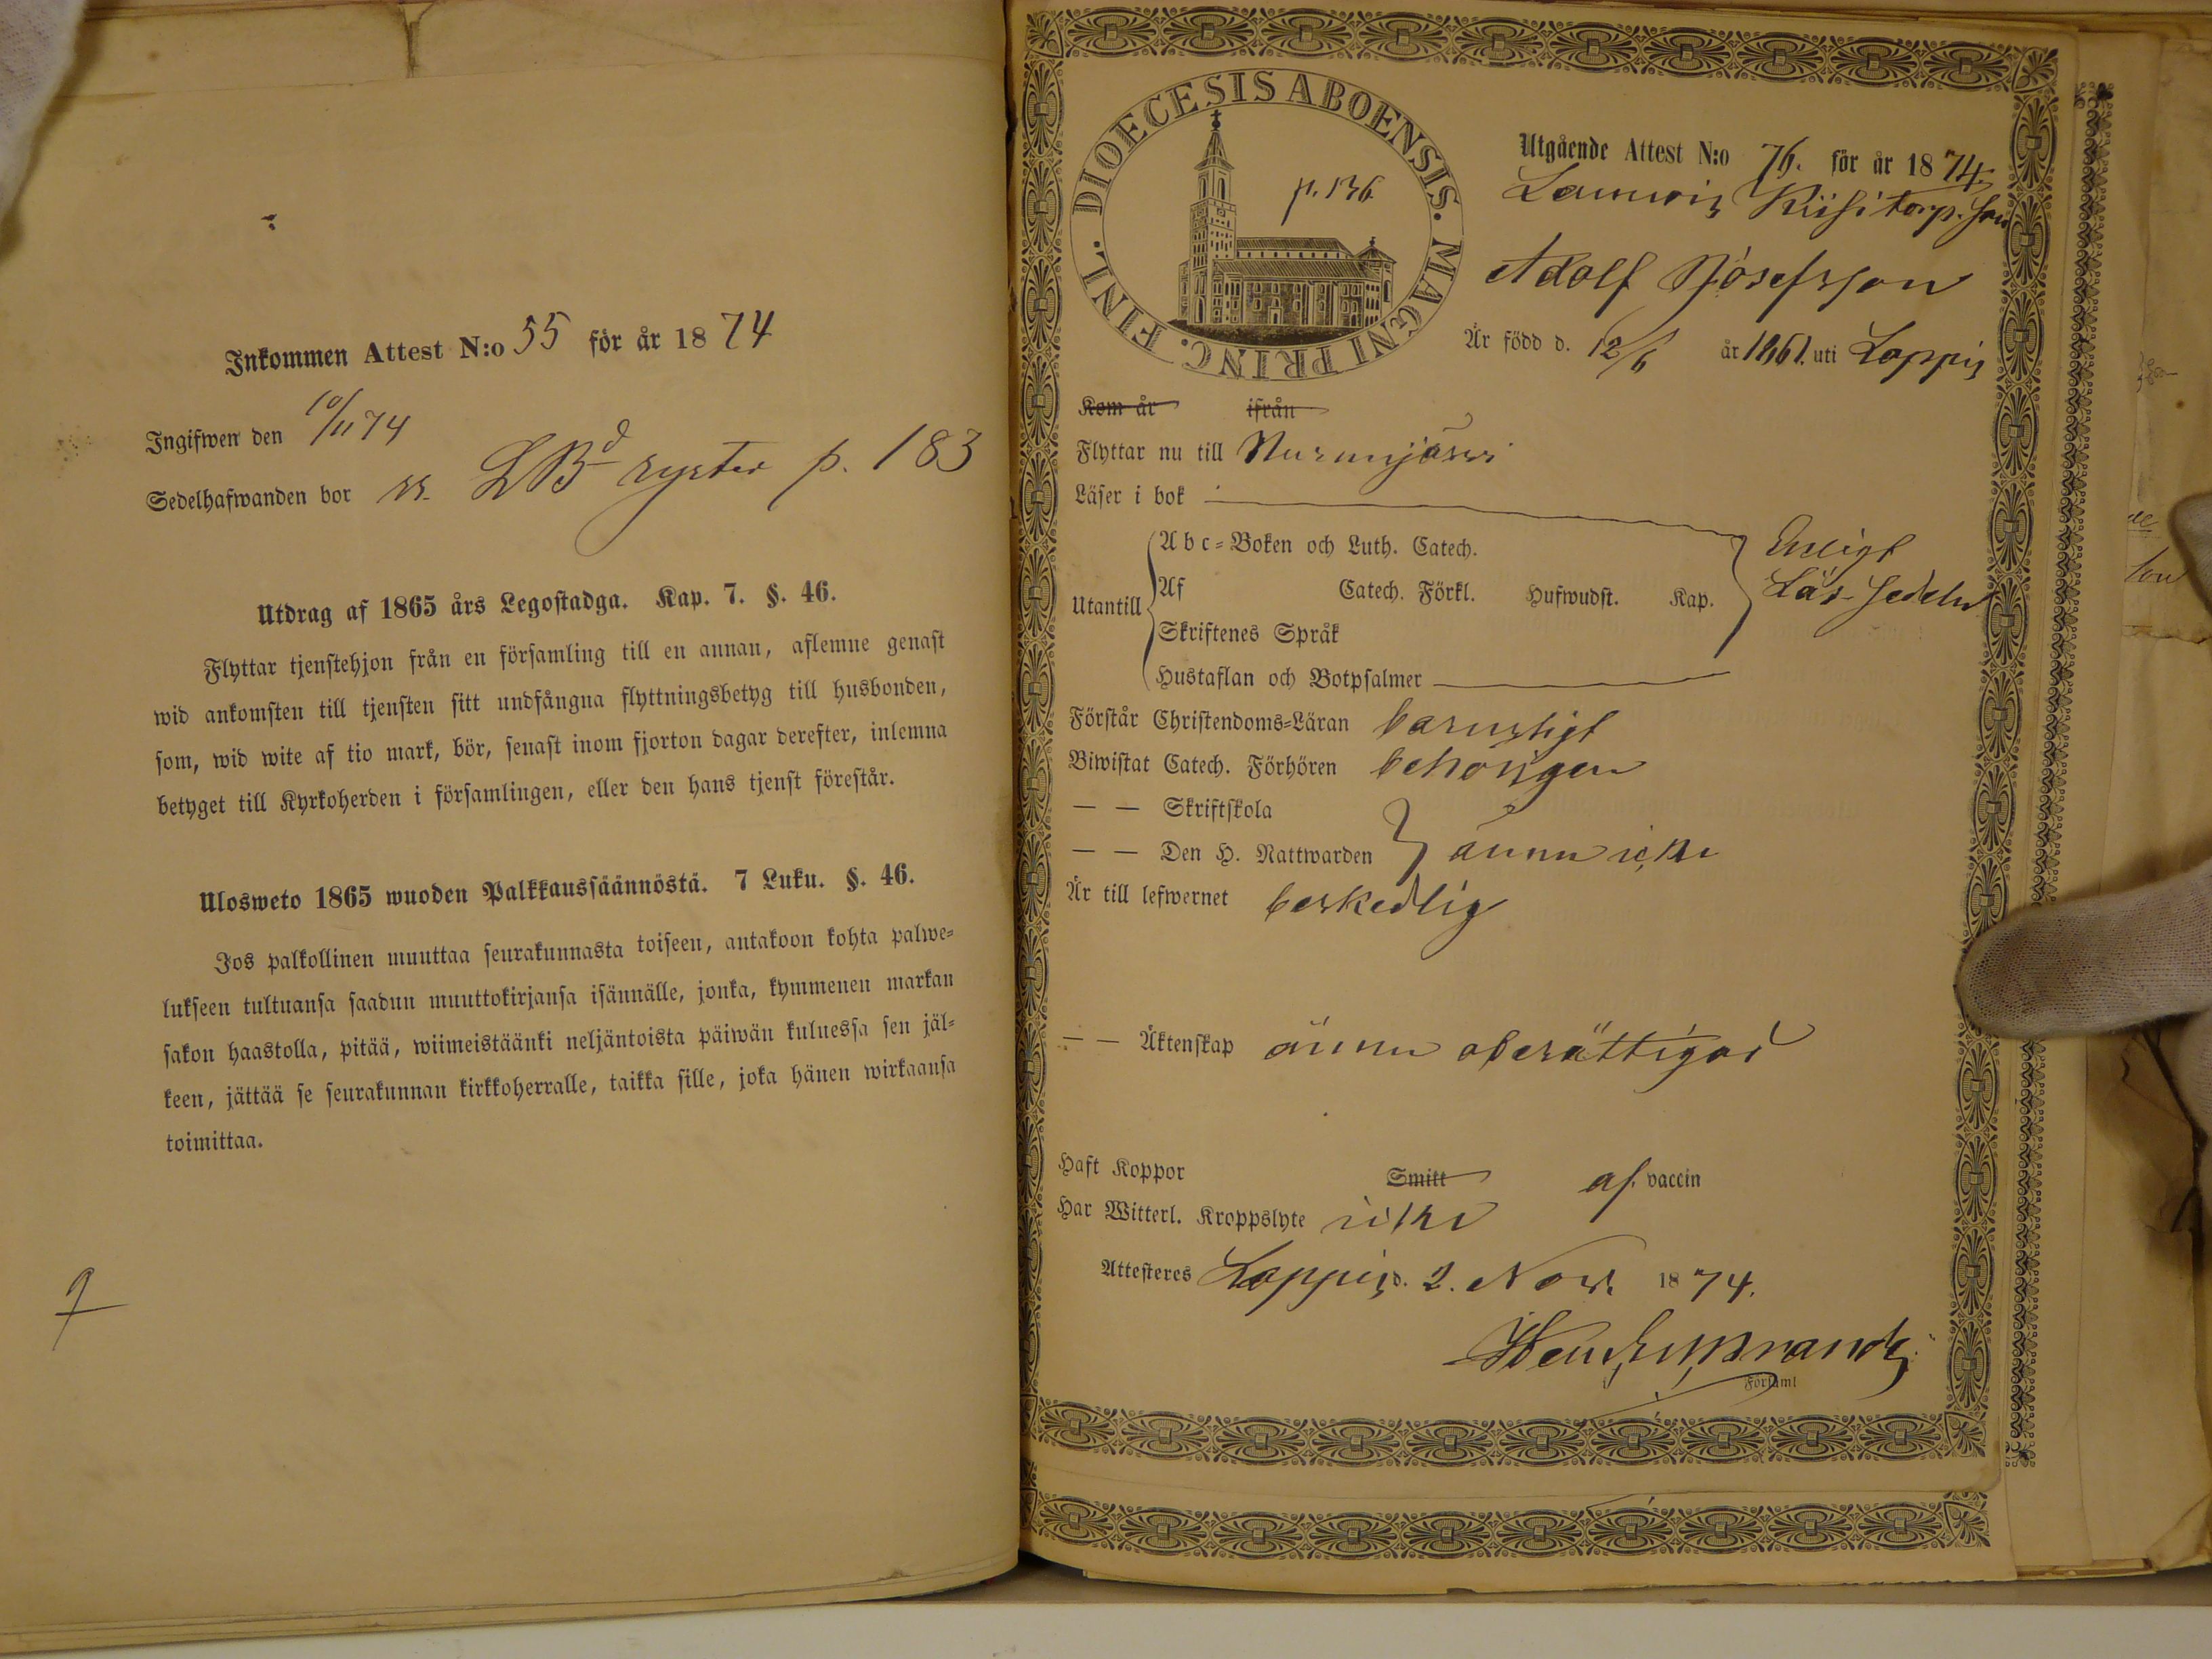 Inkommen Attest N:o 55 för år 1874
Ingifwen den 10/11 74
Sedelhafwanden bor LBd ryster p. 183
Utdrag af 1865 års Legostadga. Kap. 7. §. 46.
Flyttar tjenstehjon från en församling till en annan, aflemne genast
wid ankomsten till tjensten sitt undfångna flyttningsbetyg till husbonden,
som, wid wite af tio mark, bör, senast inom fjorton dagar derefter, inlemna
betyget till Kyrkoherden i församlingen, eller den hans tjenst förestår.
Ulosweto 1865 wuoden Palkkaussäännöstä. 7 Luku. §. 46.
Jos palkollinen muuttaa seurakunnasta toiseen, antakoon kohta palwe-
lukseen tultuansa saadun muuttokirjansa isännälle, jonka, kymmenen markan
sakon haastolla, pitää, wiimeistäänki neljäntoista päiwän kuluessa sen jäl-
keen, jättää se seurakunnan kirkkoherralle, taikka sille, joka hänen wirkaansa
toimittaa.
DIOECESIS ABOENSIS. MAGNI PRINC. FINL.
p. 136
Utgående Attest N:o 76. för år 1874.
Torp. Son
Adolf Josefsson
Är född d. 12/6 år 1861. uti Loppis
Kom år ifrån
Flyttar nu till Nurmijärvi
Läser i bok
Utantill
Abc-Boken och Luth. Catech.
Af Catech. Förkl. Hufwudst. Kap.
Skriftenes Språk
Hustaflan och Botpsalmer
Enligt
Läs-Sedeln
Förstår Christendoms-Läran barnsligt
Biwistat Catech. Förhören behörigen
— — Skriftskola
— — Den H. Nattwarden ännu icke
Är till lefwernet beskedlig
— — Äktenskap ännu oberättigad
Haft Koppor Smitt af vaccin
Har Witterl. Kroppslyte icke
Attesteres Loppis d. 2. Nov. 1874.
Församl